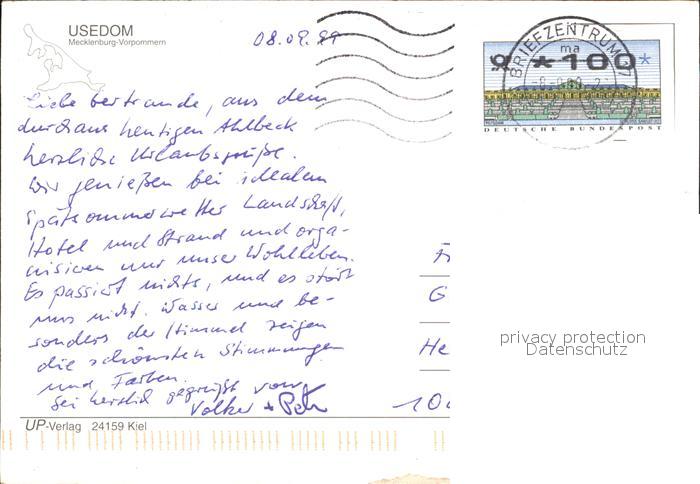 USEDOM
Mecklenburg-Vorpommern
08.09.99
BRIEFZENTRUM
ma
*100*
DEUTSCHE BUNDESPOST
Liebe Gertraude, aus dem
durchaus heutigen Ahlbeck
herzliche Urlaubsgrüße.
Wir genießen bei idealem
Spätsommerwetter Landschaft,
Hotel und Strand und orga-
nisieren nur unser Wohlleben.
Es passiert nichts, und es stört
uns nicht. Wasser und be-
sonders der Himmel zeigen
die schönsten Stimmungen
und Farben.
Sei herzlich gegrüßt von
Volker +
G
He
10
privacy protection
Datenschutz
UP-Verlag 24159 Kiel